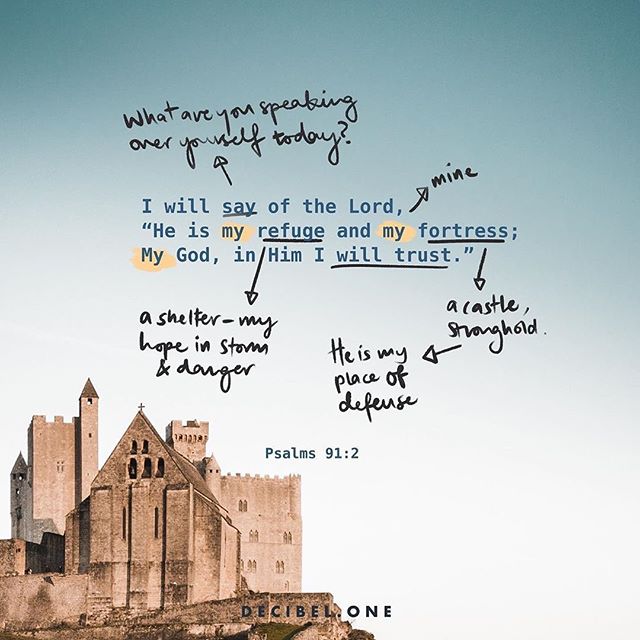 What are you speaking
over yourself today?
mine
I will say of the Lord,
“He is my refuge and my fortress;
My God, in Him I will trust.”
a shelter – my
hope in storm
& danger
a castle,
stronghold.
He is my
place of
defense
Psalms 91:2
DECIBEL.ONE